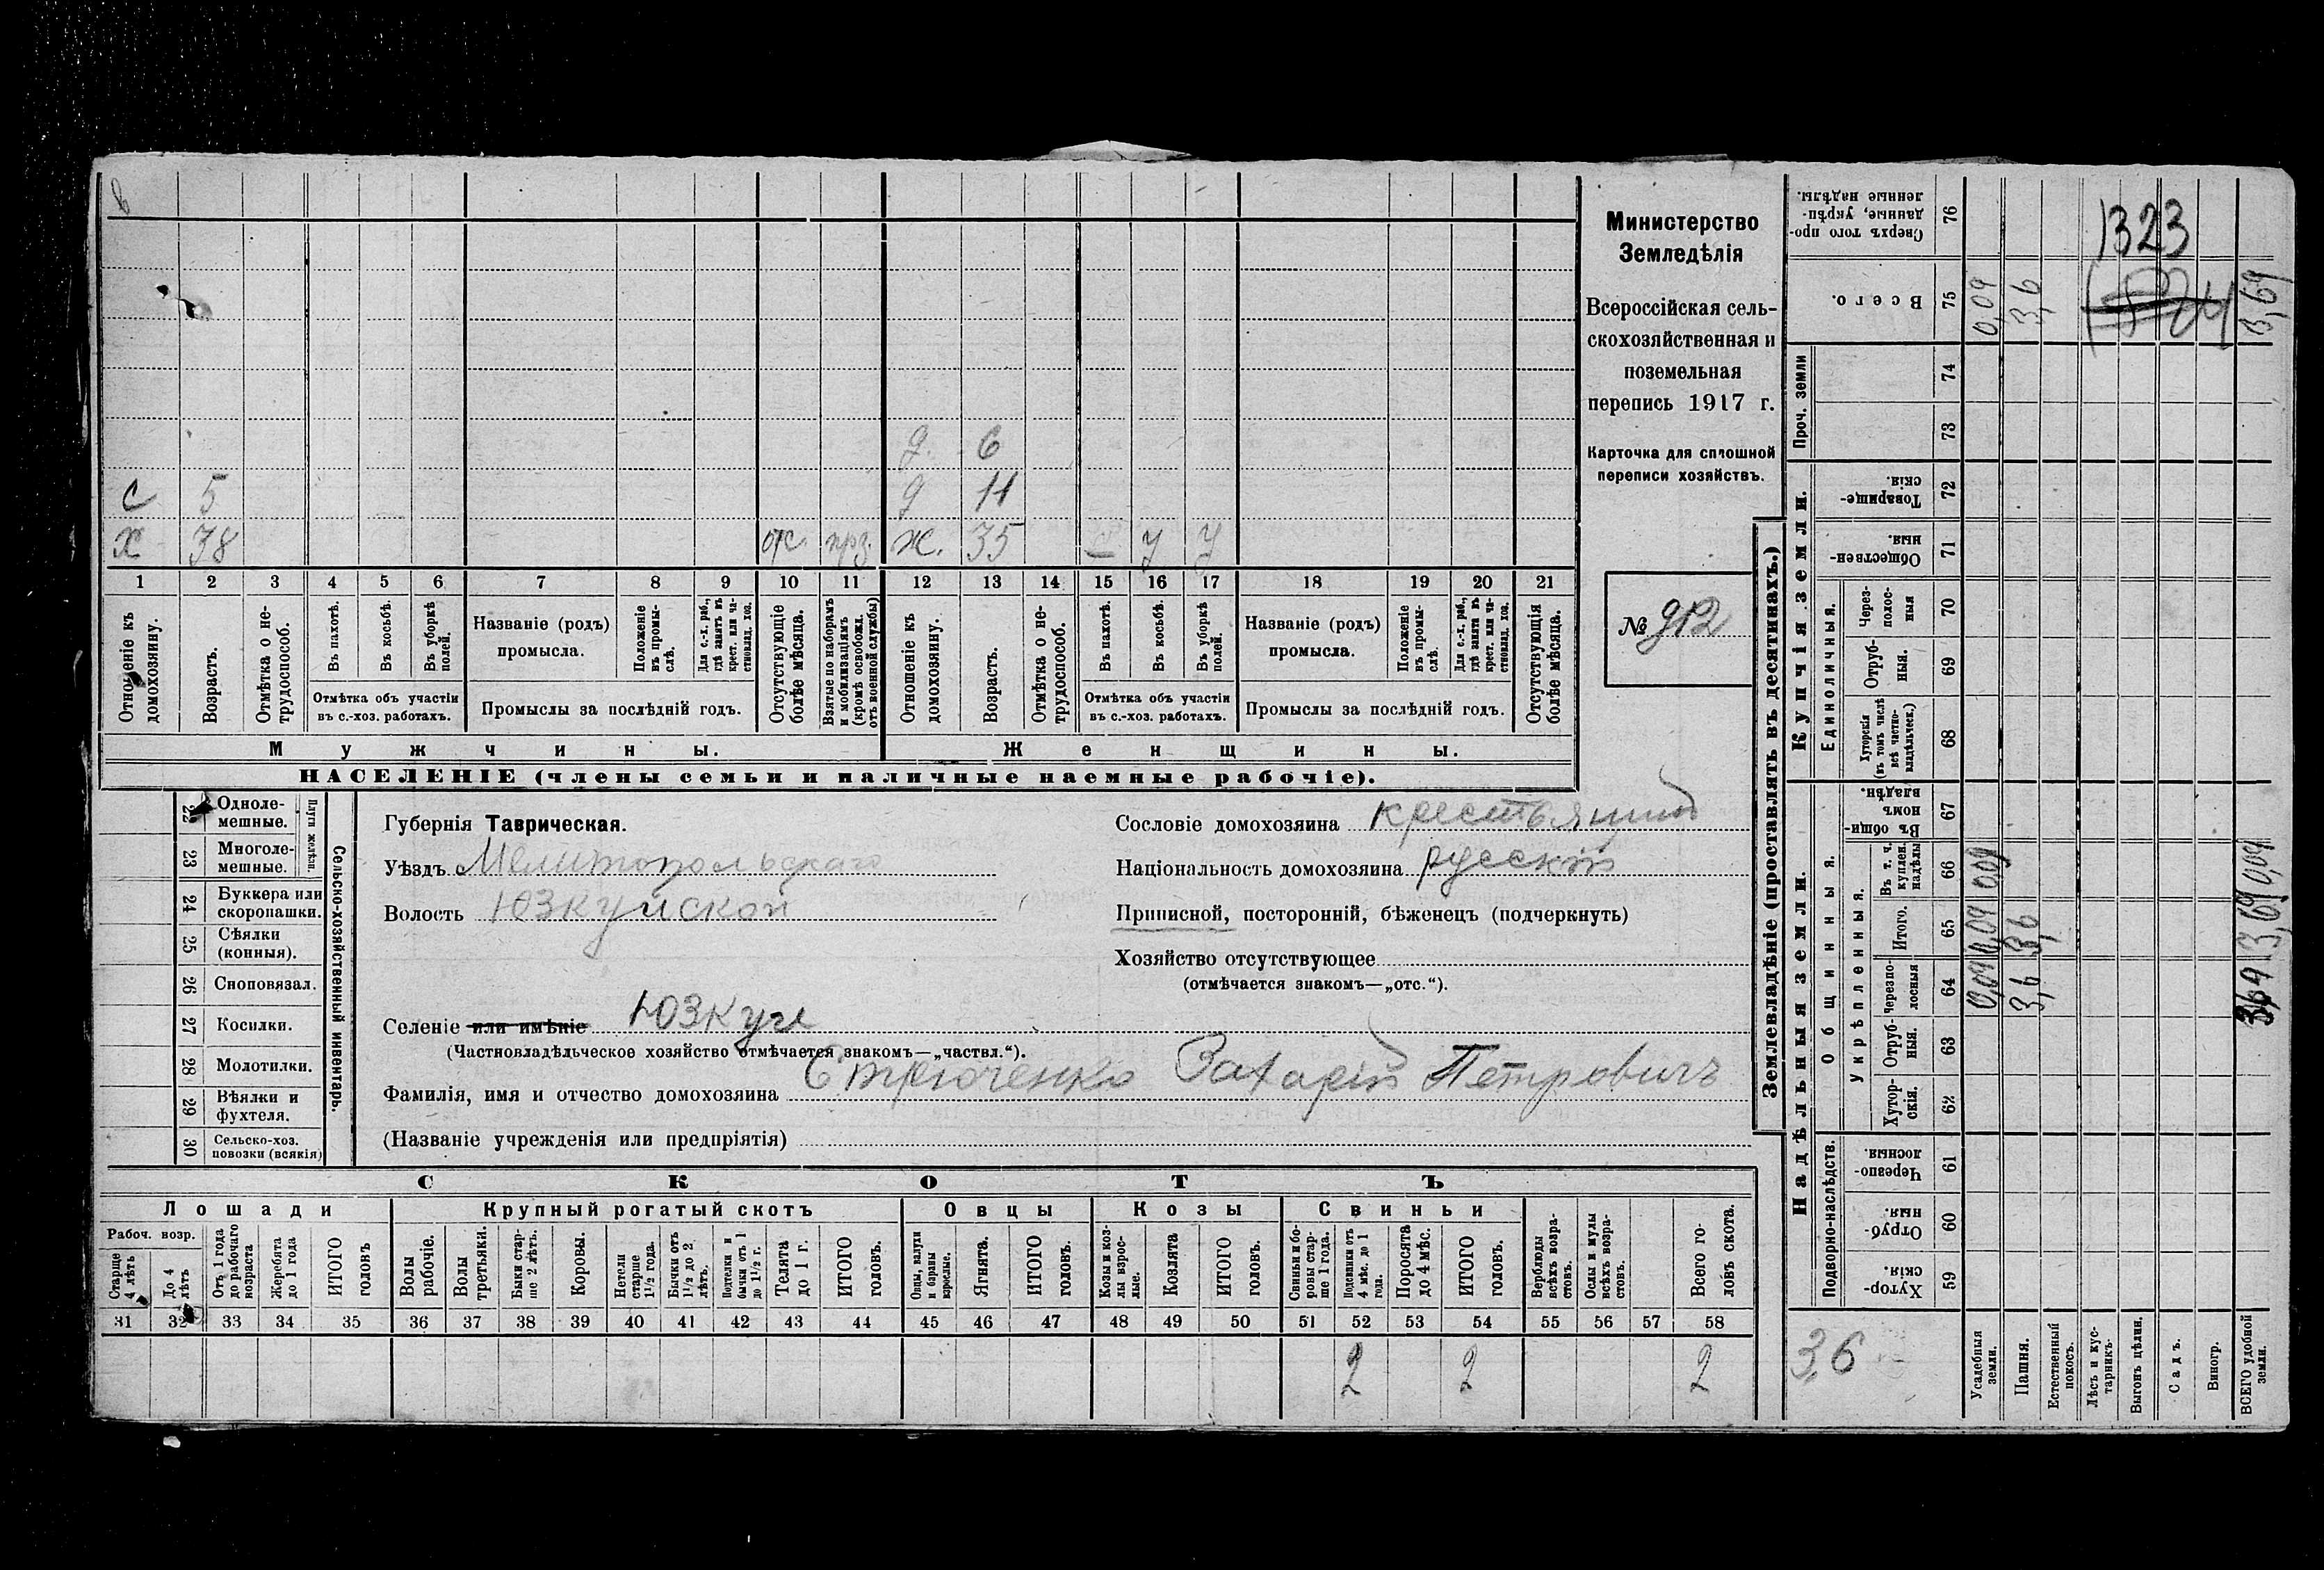 в
1323
д. 6
с 5 д 11
х 38 отс. прз. ж. 35 с у у
1 2 3 4 5 6 7 8 9 10 11 12 13 14 15 16 17 18 19 20 21
Отношеніе къ домохозяину.
Возрастъ.
Отмѣтка о не-трудоспособ.
Въ пахотѣ.
Въ косьбѣ.
Въ уборкѣ полей.
Отмѣтка объ участіи
въ с.-хоз. работахъ.
Названіе (родъ)
промысла.
Положеніе въ промы-слѣ.
Для с.-х. раб., гдѣ занятъ въ крест. или ча-стновлад. хоз.
Промыслы за послѣдній годъ.
Отсутствующіе болѣе мѣсяца.
Взятые по наборамъ и мобилизаціямъ (кромѣ освобожд. отъ военной службы)
Отношеніе къ домохозяину.
Возрастъ.
Отмѣтка о не-трудоспособ.
Въ пахотѣ.
Въ косьбѣ.
Въ уборкѣ полей.
Отмѣтка объ участіи
въ с.-хоз. работахъ.
Названіе (родъ)
промысла.
Положеніе въ промы-слѣ.
Для с.-х. раб., гдѣ занята въ крест. или ча-стновлад. хоз.
Промыслы за послѣдній годъ.
Отсутствующія болѣе мѣсяца.
Мужчины. Женщины.
НАСЕЛЕНІЕ (члены семьи и наличные наемные рабочіе).
Министерство
Земледѣлія
Всероссійская сель-
скохозяйственная и
поземельная
перепись 1917 г.
Карточка для сплошной
переписи хозяйствъ.
№ 912
Сельско-хозяйственный инвентарь.
Плуги желѣзн.
22 Одноле-мешные.
23 Многоле-мешные.
24 Буккера или скоропашки.
25 Сѣялки (конныя).
26 Сноповязал.
27 Косилки.
28 Молотилки.
29 Вѣялки и фухтеля.
30 Сельско-хоз. повозки (всякія)
Губернія Таврическая.
Уѣздъ Мелитопольскаго
Волость Юзкуйской
Сословіе домохозяина крестьянинъ
Національность домохозяина русскій
Приписной, посторонній, бѣженецъ (подчеркнуть)
Хозяйство отсутствующее
(отмѣчается знакомъ—„отс.“).
Селеніе или имѣніе Юзкуи
(Частновладѣльческое хозяйство отмѣчается знакомъ—„частвл.“).
Фамилія, имя и отчество домохозяина Стрюченко Захарій Петровичъ
(Названіе учрежденія или предпріятія)
СКОТЪ
Лошади Крупный рогатый скотъ Овцы Козы Свиньи
Рабоч. возр.
Старше 4 лѣтъ
До 4 лѣтъ
Отъ 1 года до рабочаго возраста
Жеребята до 1 года
ИТОГО головъ
Волы рабочіе.
Волы третьяки.
Быки стар-ше 2 лѣтъ.
Коровы.
Нетели старше 1½ года.
Бычки отъ 1½ до 2 лѣтъ.
Подтелки и бычки отъ 1 до 1½ г.
Телята до 1 г.
ИТОГО головъ.
Овцы, валухи и бараны взрослые.
Ягнята.
ИТОГО головъ.
Козы и коз-лы взрос-лые.
Козлята
ИТОГО головъ.
Свиньи и бо-ровы стар-ше 1 года.
Подсвинки отъ 4 мѣс. до 1 года.
Поросята до 4 мѣс.
ИТОГО головъ.
Верблюды всѣхъ возра-стовъ.
Ослы и мулы всѣхъ возра-стовъ.
Всего го-ловъ скота.
31 32 33 34 35 36 37 38 39 40 41 42 43 44 45 46 47 48 49 50 51 52 53 54 55 56 57 58
2 2 2
Землевладѣніе (проставлять въ десятинахъ.)
Надѣльныя земли. Купчія земли. Проч. земли
Подворно-наслѣдств. Общинныя. Единоличныя.
Укрѣпленныя.
59 Хутор-скія.
60 Отруб-ныя.
61 Черезпо-лосныя
62 Хутор-скія.
63 Отруб-ныя.
64 Черезпо-лосныя
65 Итого.
66 Въ т. ч. куплен. надѣлы
67 Въ общин-номъ владѣн.
68 Хуторскія (въ томъ числѣ всѣ частно-владѣльческ.)
69 Отруб-ныя.
70 Через-полос-ныя
71 Обществен-ныя.
72 Товарище-скія.
73
74
75 Всего.
76 Сверхъ того про-данные, укрѣп-ленные надѣлы.
3,6
Усадебныя земли. 0,09 0,09 0,09 0,09
Пашня. 3,6 3,6 3,6
Естественный покосъ.
Лѣсъ и кус-тарникъ.
Выгонъ цѣлин.
Садъ.
Виногр.
ВСЕГО удобной земли. 3,69 3,69 0,09 3,69